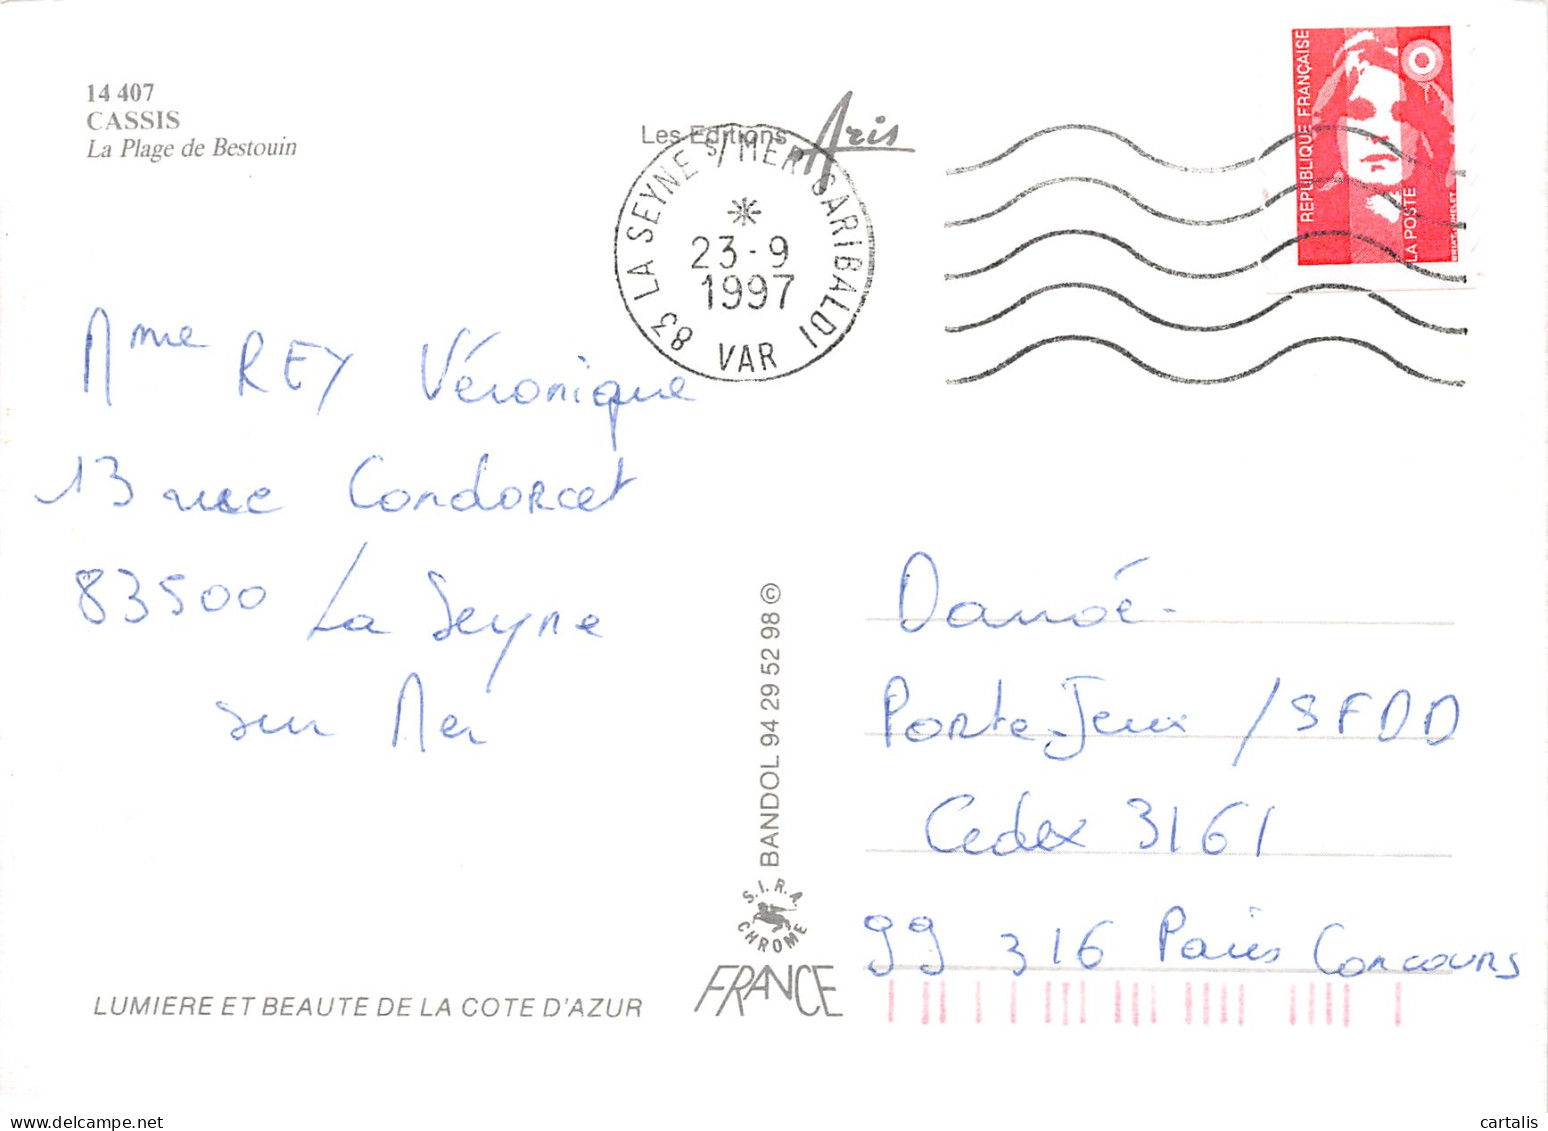 14 407
CASSIS
La Plage de Bestouin
Les Editions Aris
83 LA SEYNE S/MER GARIBALDI
23-9
1997
VAR
REPUBLIQUE FRANÇAISE
LA POSTE
Mme REY Véronique
13 rue Condorcet
83500 La Seyne
sur Mer
Danoé-
Porte-Jeux / SFDD
Cedex 3161
99 316 Paris Concours
BANDOL 94 29 52 98 ©
S.I.R.A.
CHROME
FRANCE
LUMIERE ET BEAUTE DE LA COTE D'AZUR
cartalis